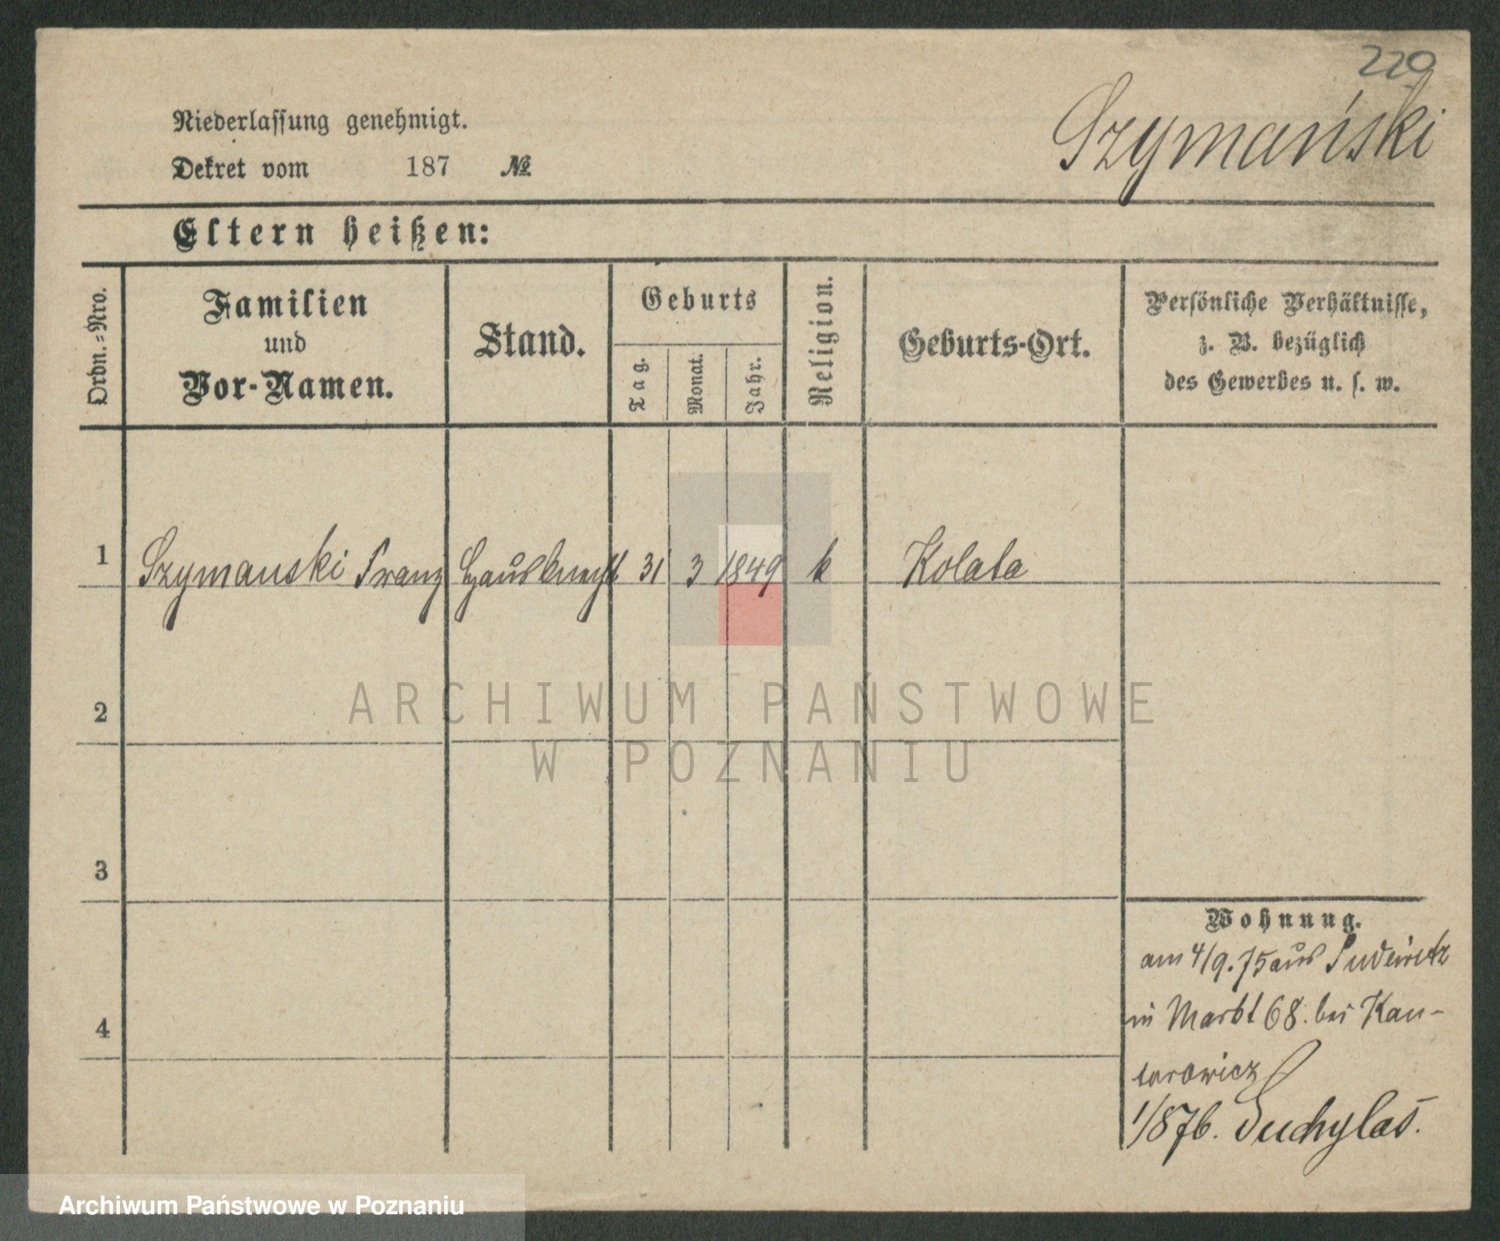 220
Szymański
Niederlassung genehmigt.
Dekret vom 187 №
Eltern heißen:
Ordn.-Nro.
Familien
und
Vor-Namen.
Stand.
Geburts
Tag.
Monat.
Jahr.
Religion.
Geburts-Ort.
Persönliche Verhältnisse,
z. B. bezüglich
des Gewerbes u. s. w.
1 Szymanski Franz Hausknecht 31 3 1849 k Kolata
2
3
4
Wohnung.
am 4/9. 75 aus Pudewitz
in Markt 68. bei Kan-
torowicz
1/8 76. Suchylas.
ARCHIWUM PAŃSTWOWE
W POZNANIU
Archiwum Państwowe w Poznaniu